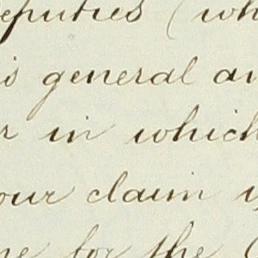 eputies (wh
is general an
r in which
our claim i
me for the